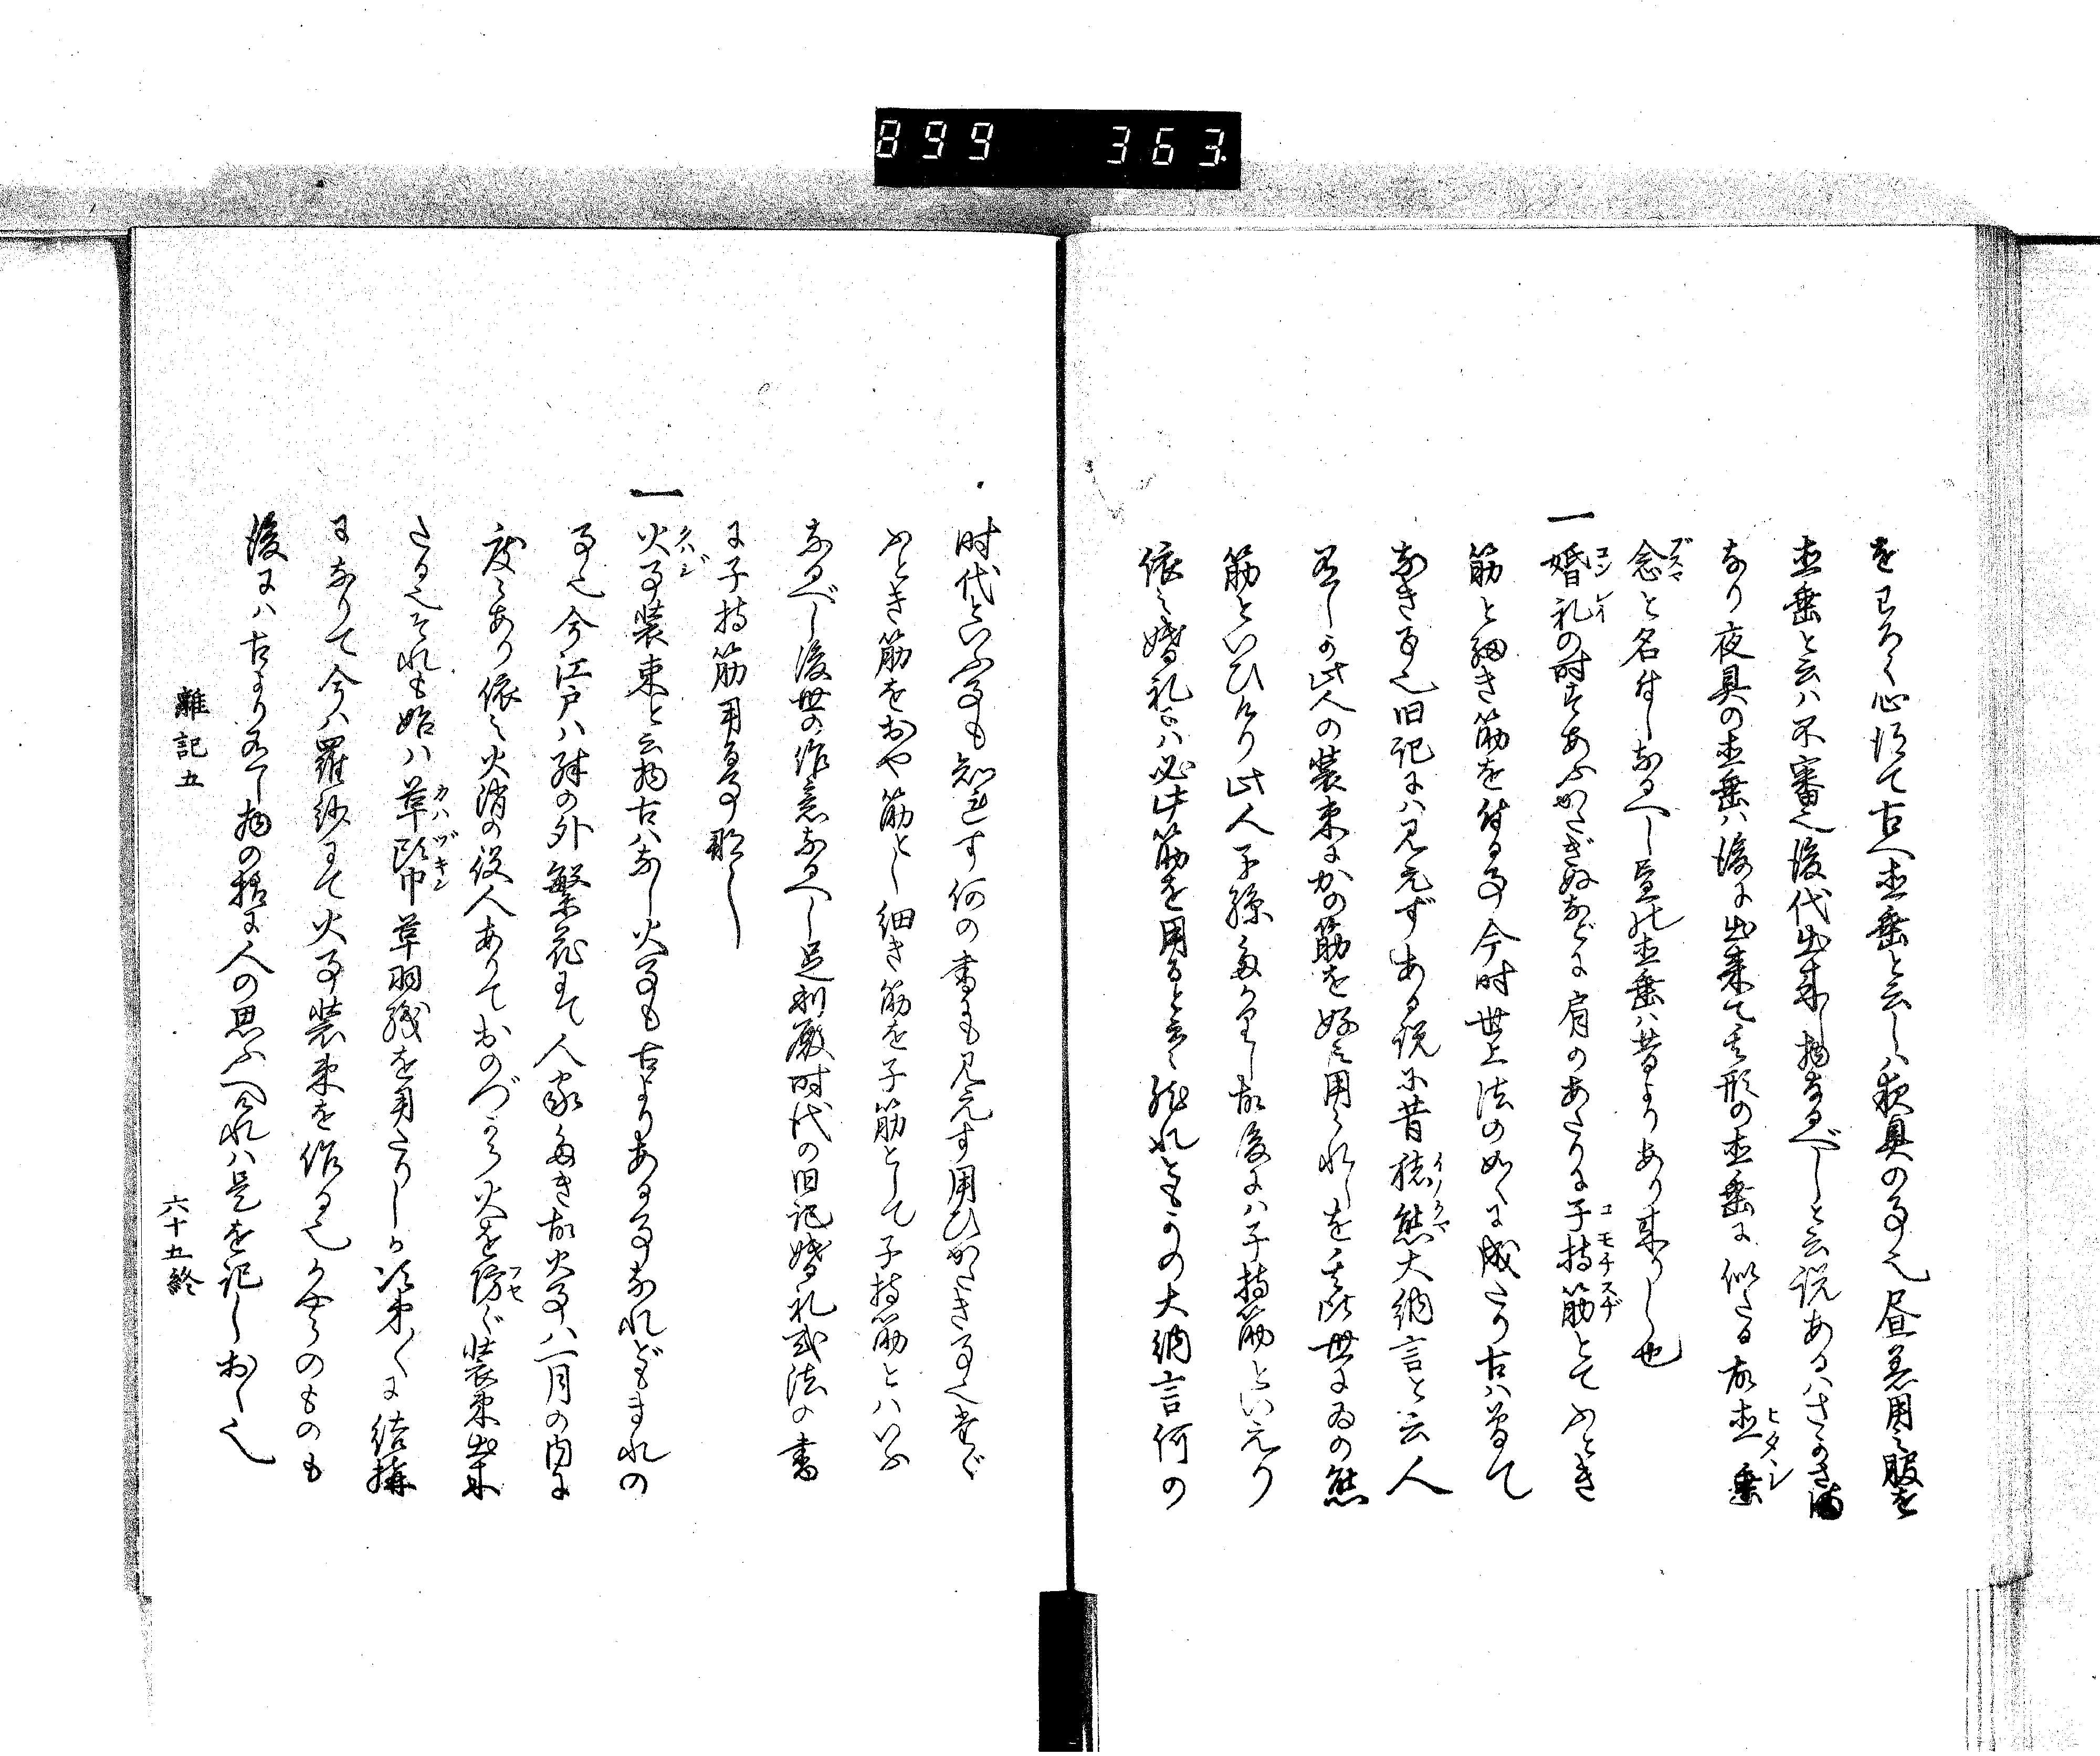 899 363
をわろく心得て古へ直垂と云しハ夜具の事也昼着用之服を
直垂と云ハ不審也後代出来し物なるべしと云説あるハさかさま
なり夜具の直垂ハ後に出来て其形の直垂に似たる故直垂
衾と名付しなるへし昼の直垂ハ昔よりあり来りし也
一 婚礼の時きあふかたぎぬなどに肩のあたりに子持筋とてふとき
筋と細き筋を付る事今時世上法の如くに成たり古ハ曽て
なき事也旧記にハ見えずある説に昔猪熊大納言と云人
有しか此人の装束にかの筋を好み用られしを其比世にゐの熊
筋といひけり此人子孫多かりし故後にハ子持筋といえり
依之婚礼にハ必此筋を用ると云々然れともかの大納言何の
時代といふ事も知れす何の書にも見えす用ひかたき事也たゞ
ふとき筋をおや筋とし細き筋を子筋として子持筋とハいふ
なるべし後世の作意なるへし足利殿時代の旧記婚礼式法の書
に子持筋用る事那し
一 火事装束と云物古ハなし火事も古よりある事なれどもまれの
事也今江戸ハ殊の外繁花にて人家多き故火事ハ一月の内に
度々あり依之火消の役人ありておのづから火を防ぐ装束出来
たる也それも始ハ革頭巾革羽織を用たりしか次第〱に結構
になりて今ハ羅紗にて火事装束を作る也かやうのものも
後にハ古より有し物の様に人の思ふへけれハ是を記しおく也
雜記五
六十五終